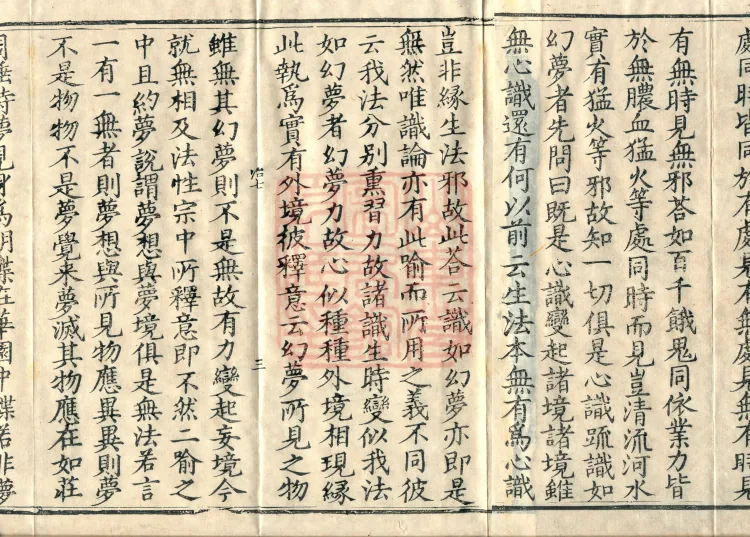 處同時皆同於有處見有無處見無不時見
有無時見無邪荅如百千餓鬼同依業力皆
於無膿血猛火等處同時而見豈清流河水
實有猛火等邪故知一切俱是心識踈識如
幻夢者先問曰既是心識變起諸境諸境雖
無心識還有何以前云生法本無有為心識
豈非緣生法邪故此荅云識如幻夢亦即是
無然唯識論亦有此喻而所用之義不同彼
云我法分別熏習力故諸識生時變似我法
如幻夢者幻夢力故心似種種外境相現緣
此執為實有外境彼釋意云幻夢所見之物
雖無其幻夢則不是無故有力變起妄境今
就無相及法性宗中所釋意即不然二喻之
中且約夢說謂夢想與夢境俱是無法若言
一有一無者則夢想與所見物應異異則夢
不是物物不是夢覺来夢滅其物應在如莊
周睡時夢見身為胡蝶在華園中蝶若非夢
三